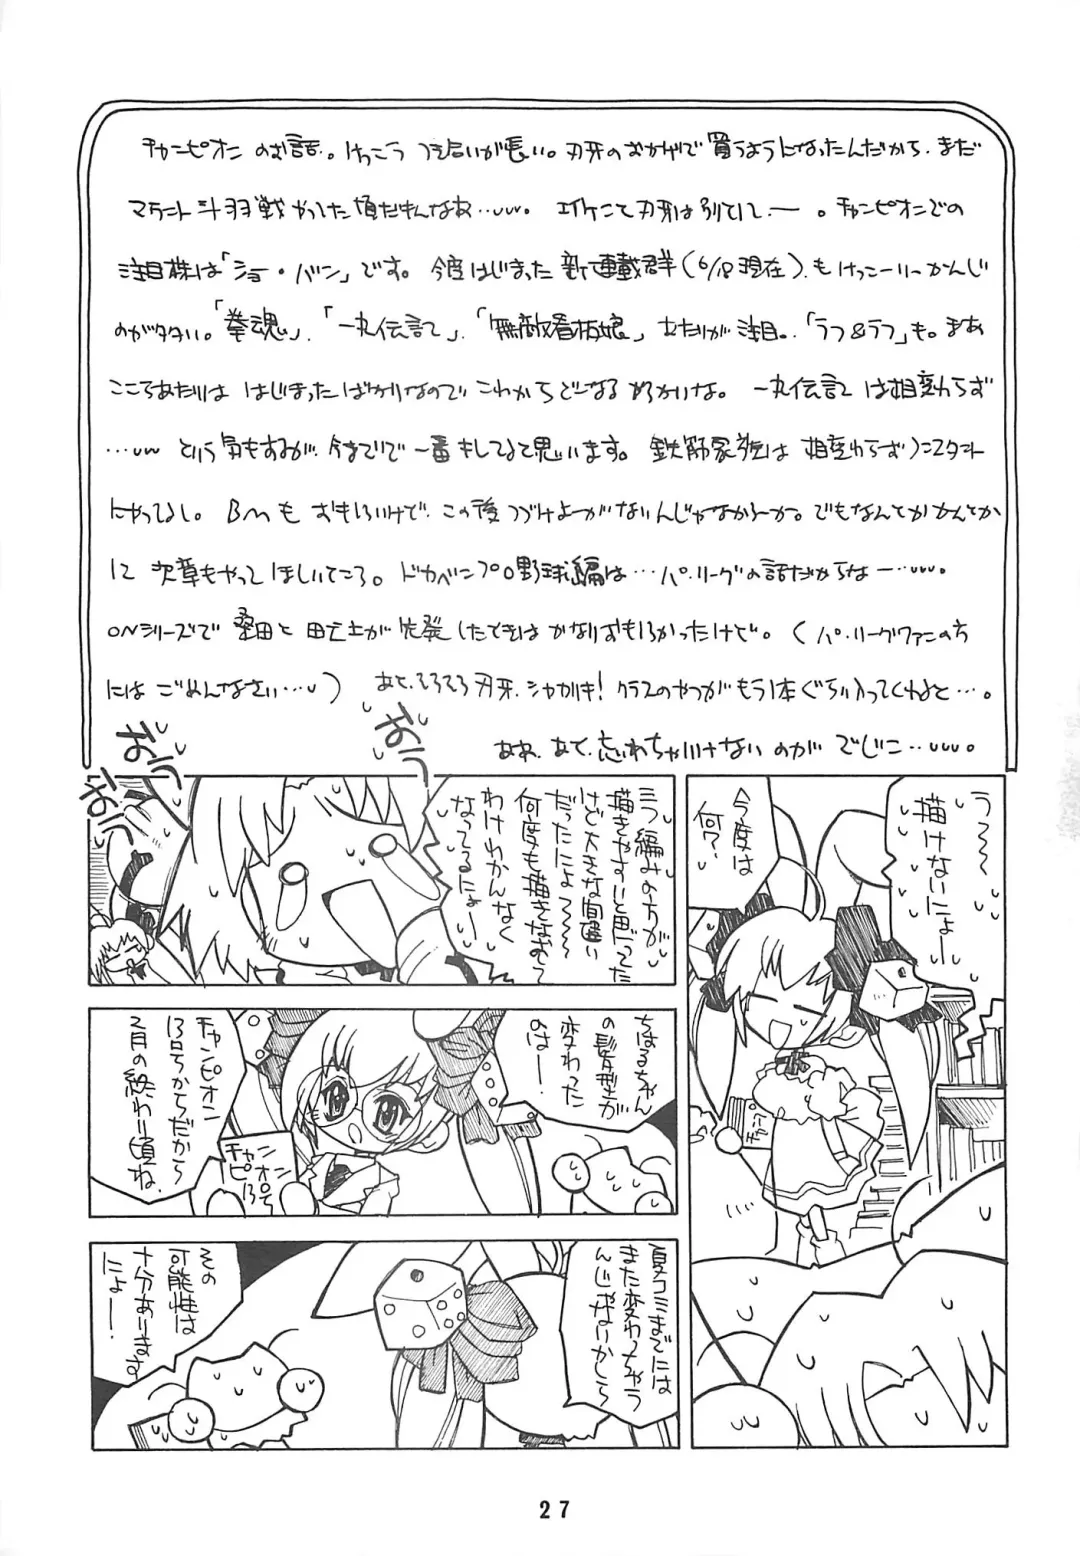 チャンピオン のお話。けっこう つき合いが長い。刃牙のおかげで買うようになったんだから、まだ
マウント斗羽戦やってた頃だもんなあ…uuu。 エイケンと刃牙は別としてー。チャンピオンでの
注目株は「ショー・バン」です。今度はじまった新連載群(6/18現在)、もけっこーいーかんじ
のがタタい。「拳魂」、「一丸伝記」、「無敵看板娘」あたりが注目。「ラブ&ラブ」も。まあ
ここらあたりは はじまったばかりなので これからどーなるめろかいな。 一丸伝記は相変わらず
…uu という気もするが、今までで一番キレてると思います。鉄筋家族は 相変わらずソニスタント
にやってるし。Bmもおもろいけど、この後つづけよーがないんじゃなかろーか。でもなんとかかんとか
に次章もやってほしいところ。ドカベンプロ野球編は…パ・リーグの話だからなー…uuu。
ONシリーズで桑田と 田之上が先発したときは かなりおもろかったけど。(パ・リーグファンの方
にはごめんなさい…u) あと、そろそろ刃牙、シャカリキ!クラスのやつがもう1本ぐらい入ってくれると…。
あね、あと、忘れちゃいけないのが でじこ…uuu。
う〜〜
描けないにょー
今度は
何?
チャンプ
おうっ
おうっ
おうっ
ミラ編みの方が
描きやすいと思ってた
けど大きな間違い
だったにょ〜〜〜
何度も描きなおして
わけわかんなく
なってるにょー
ちはるちゃん
の髪型が
変わった
のはー!
チャンピオン
13号
チャンピオン
13号からだから
2月の終わり頃ね。
夏コミまでには
また変わっちゃう
んじゃないかしら
その
可能性は
十分あります
にょー!
27